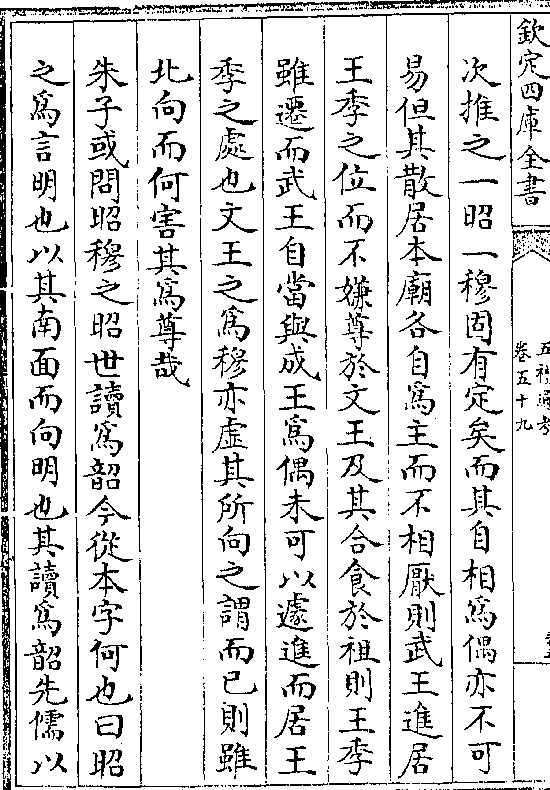 欽定四庫全書
五禮通考
卷五十九
次推之一昭一穆固有定矣而其自相爲偶亦不可
易但其散居本廟各自爲主而不相厭則武王進居
王季之位而不嫌尊於文王及其合食於祖則王季
雖遷而武王自當與成王爲偶未可以遽進而居王
季之處也文王之爲穆亦虛其所向之謂而已則雖
北向而何害其爲尊哉
朱子或問昭穆之昭世讀爲韶今從本字何也曰昭
之爲言明也以其南面而向明也其讀爲韶先儒以